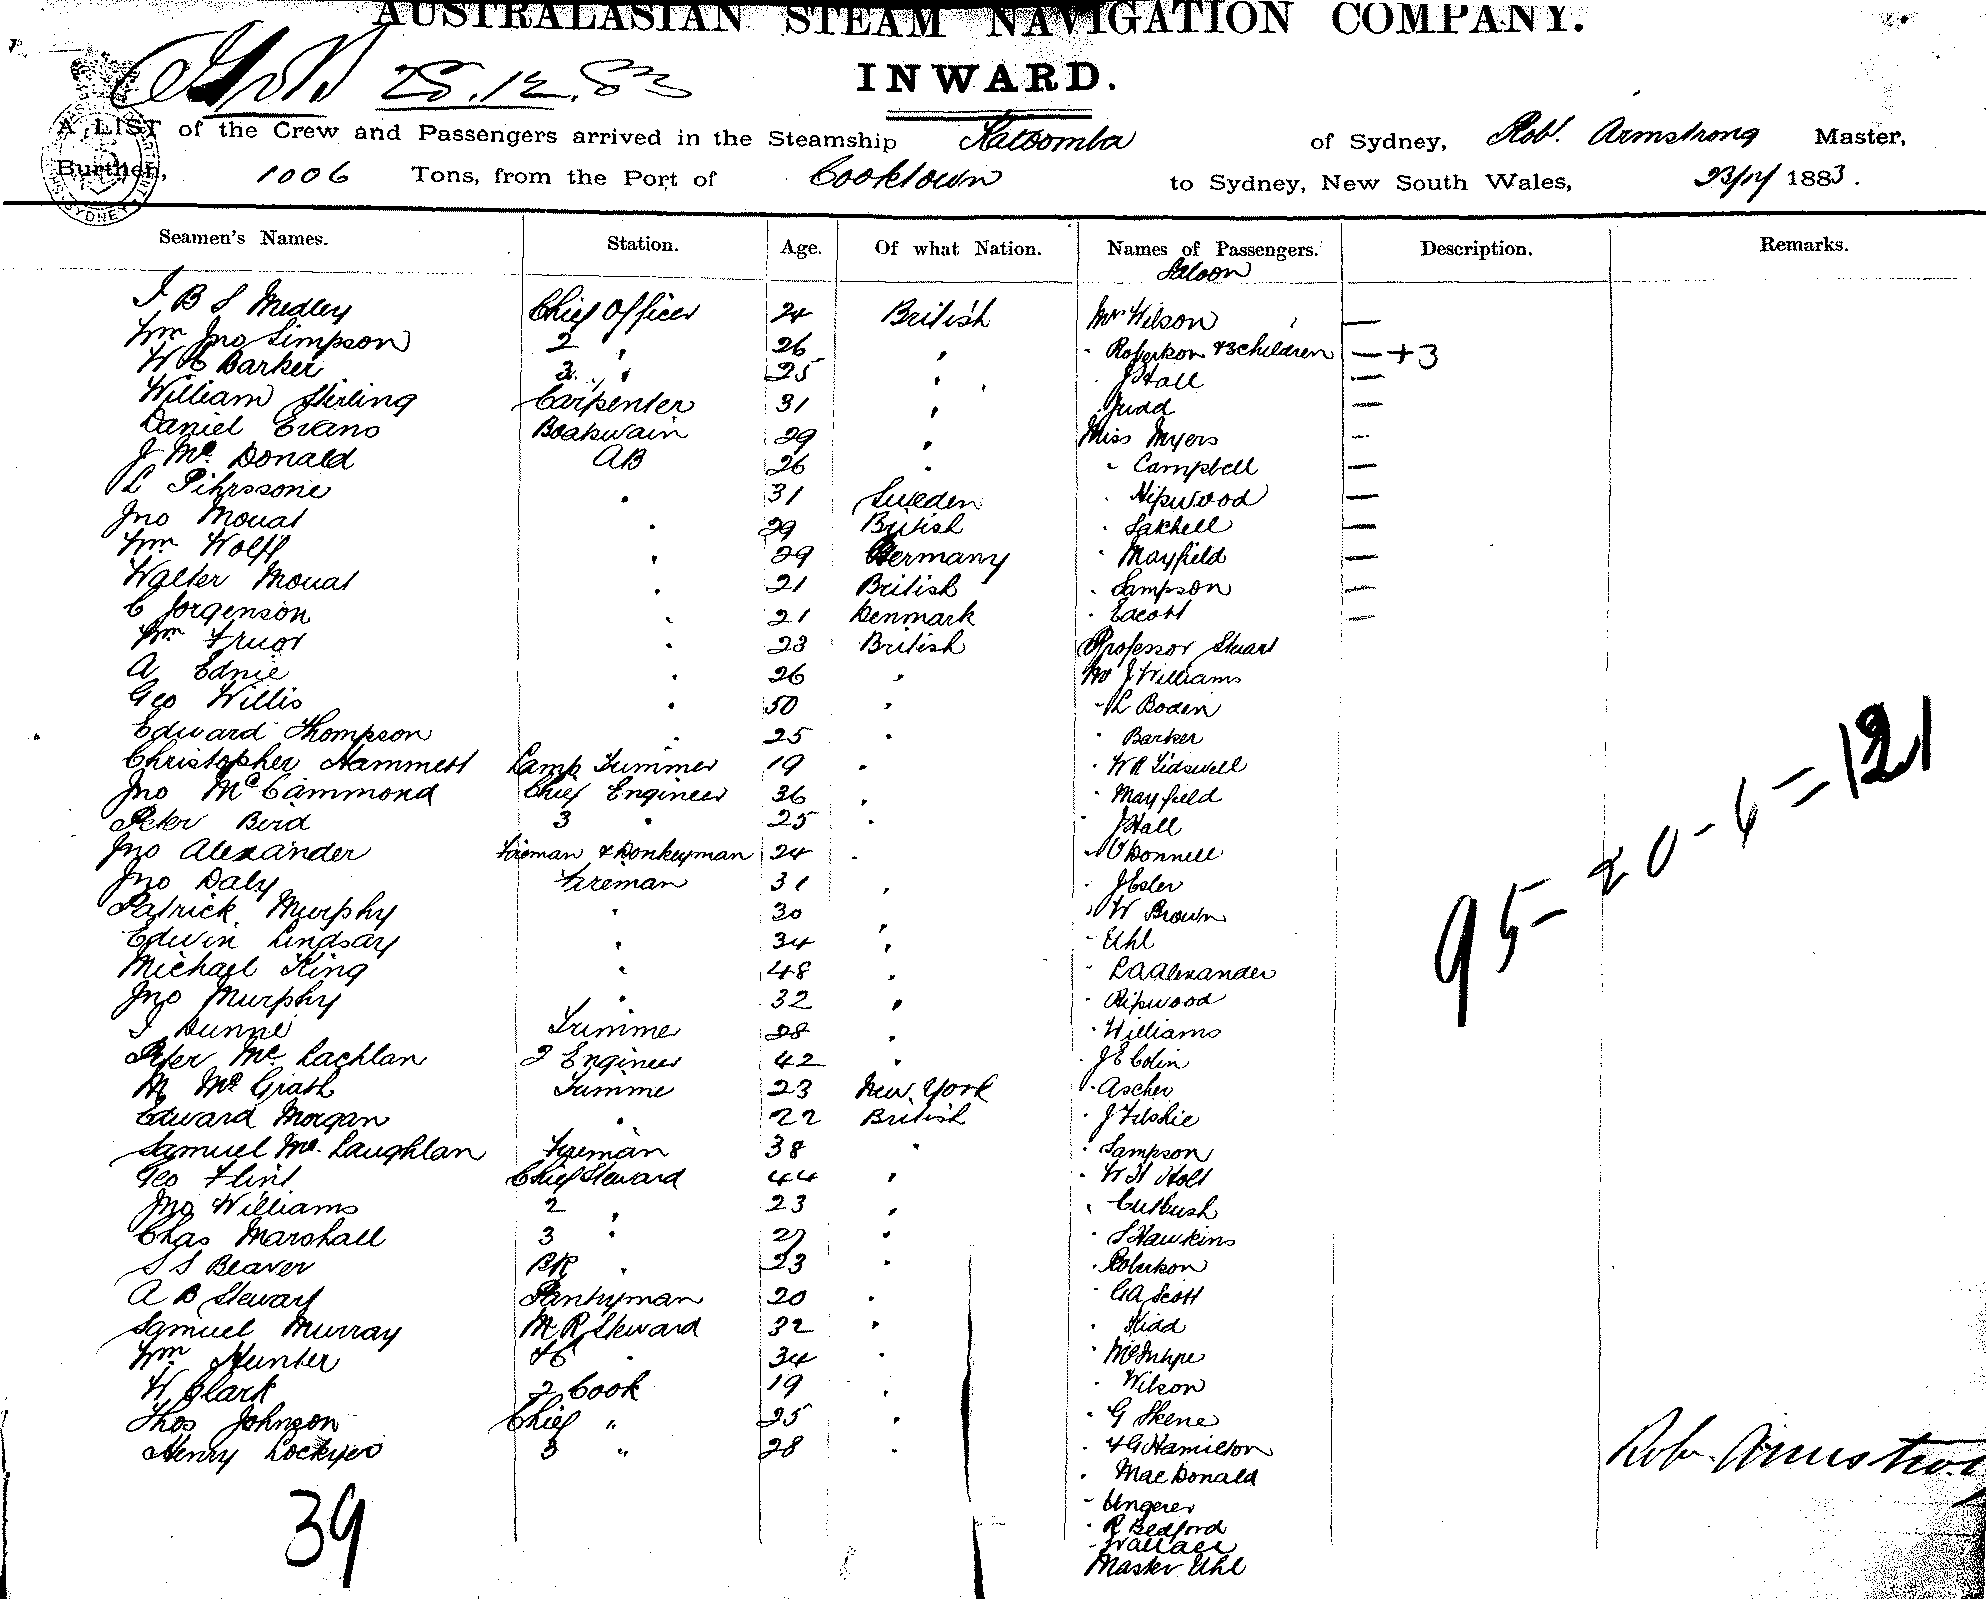 AUSTRALASIAN STEAM NAVIGATION COMPANY.
28.12.83
INWARD.
A LIST of the Crew and Passengers arrived in the Steamship Katoomba of Sydney, Robt. Armstrong Master,
Burthen, 1006 Tons, from the Port of Cooktown to Sydney, New South Wales, 23/12/ 1883.
Seamen's Names. Station. Age. Of what Nation. Names of Passengers. Description. Remarks.
Saloon
J B S Medley Chief Officer 24 British Mrs Wilson —
Wm Jno Simpson 2 " 26 " " Robertson & 3 children — + 3
W H Barker 3 " 25 " " J Hall —
William Stirling Carpenter 31 " " Judd —
Daniel Evans Boatswain 29 " Miss Myers —
J Mc Donald AB 26 " " Campbell —
L " 31 Sweden " Hipwood —
Jno Mouat " 29 British " Satchell —
Wm Wolff " 29 Germany " Mayfield —
Walter Mouat " 21 British " Sampson —
C Jorgenson " 21 Denmark " Eacott —
Wm " 23 British Professor Stuart
A Ednie " 26 " Mr J Williams
Geo Willis " 50 " " L Boden
Edward Thompson " 25 " " Barker
Christopher Hammett Lamp Trimmer 19 " " W R Lidswell
Jno McCammond Chief Engineer 36 " " Mayfield
Peter Bird 3 " 25 " " J Hall
Jno Alexander Fireman & Donkeyman 24 " " O'Donnell
Jno Daly Fireman 31 " " J Esler
Patrick Murphy " 30 " " W Brown
Edwin Lindsay " 34 " " Uhl
Michael King " 48 " " L A Alexander
Jno Murphy " 32 " " Ripwood
J Dunne Trimme 28 " " Williams
Peter Mc Lachlan 2 Engineer 42 " " J E Colin
M Mc Grath Trimme 23 New York " Ascher
Edward Morgan " 22 British " J Filshie
Samuel Mc Laughlan Fireman 38 " " Sampson
Geo Flint Chief Steward 44 " " W H Holt
Jno Williams 2 " 23 " " Cutbush
Chas Marshall 3 " 27 " " S Hawkins
S S Beaver BR " 23 " " Robertson
A B Stewart Pantryman 20 " " G A Scott
Samuel Murray M R Steward 32 " " Kidd
Wm Hunter " 34 " " McIntyre
W Clark 2 Cook 19 " " Wilson
Thos Johnson Chief " 25 " " G Skene
Henry Lockyer 3 " 28 " " Hamilton
" MacDonald
" Ungerer
" R Bedford
" Wallace
Master Uhl
39
95 - 20 - 6 = 121
Robt. Armstrong